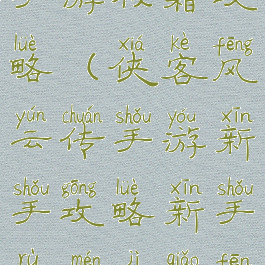 luè xiá kè fēng
略（侠客风
yún chuán shǒu yóu xīn
云传手游新
shǒu gōng luè xīn shǒu
手攻略新手
rù mén jì qiǎo fēn